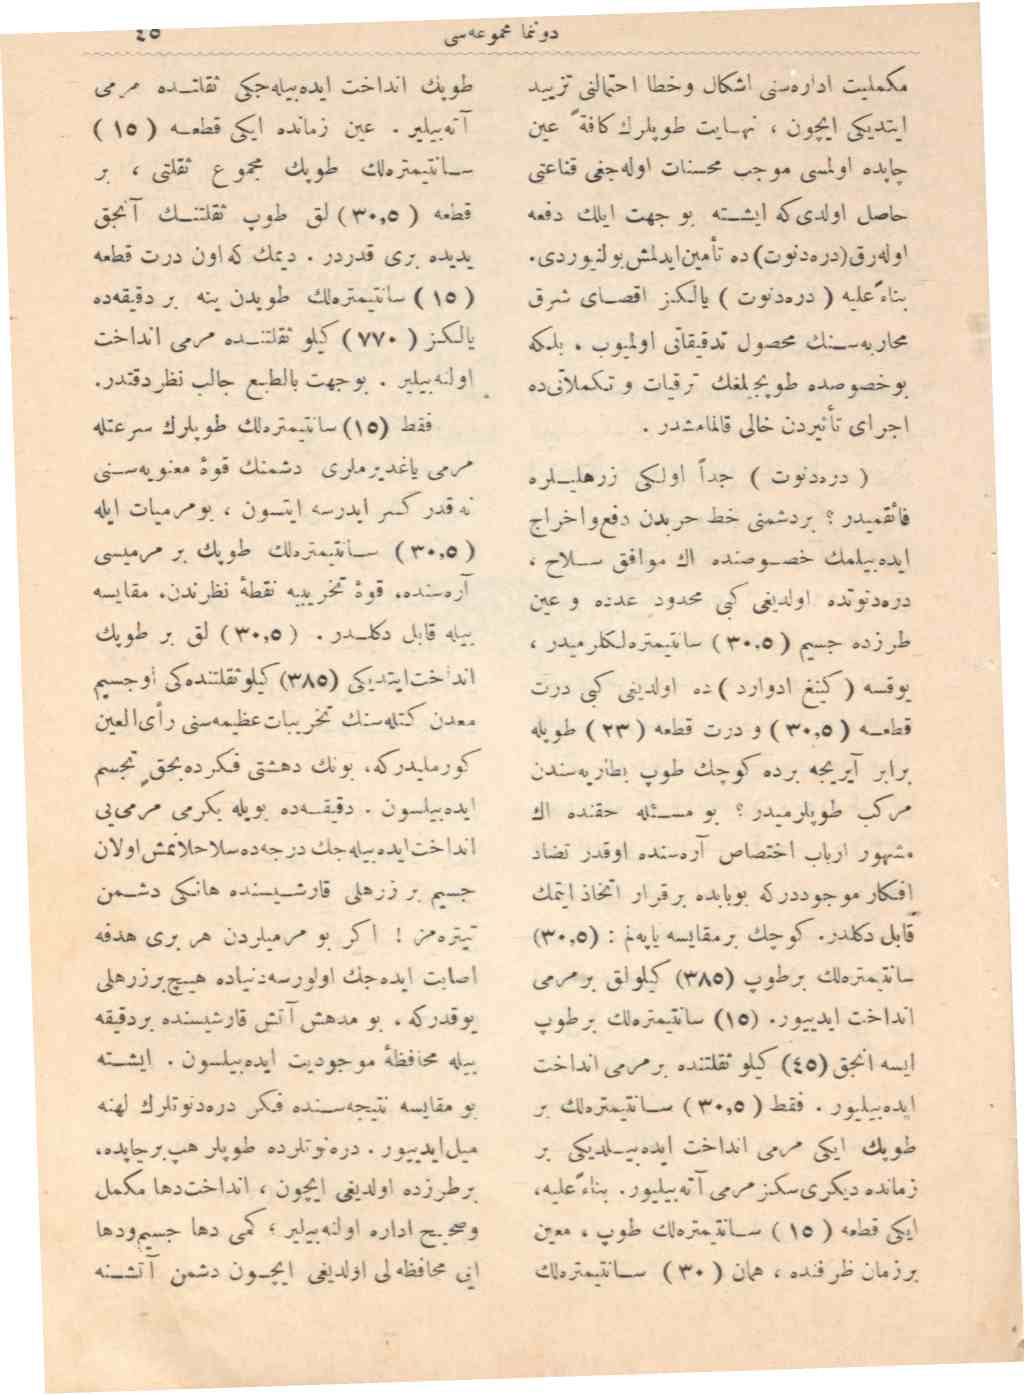 دونما مجموعه‌سی
٤٥
مكمليت اداره‌سنی اشكال وخطا احتمالنی تزييد
ايتديكی ايچون ، نهايت طوپلرك كافةً عين
چاپده اولمسی موجب محسنات اوله‌جغی قناعتی
حاصل اولدی‌كه ايشته بو جهت ايلك دفعه
اوله‌رق (دره‌دنوت) ده تأمين ايدلمش بولنيوردی.
بناءً عليه ( دره‌دنوت ) يالكز اقصای شرق
محاربه‌سنك محصول تدقيقاتی اولميوب ، بلكه
بوخصوصده طوپجيلغك ترقيات و تكملاتی‌ده
اجرای تأثيردن خالی قالمامشدر .
( دره‌دنوت ) جداً اولكی زرهليلره
فائقميدر ؟ بردشمنی خط حربدن دفع واخراج
ايده‌بيلمك خصوصنده اك موافق سلاح ،
دره‌دنوتده اولديغی كبی محدود عدده و عين
طرزده جسيم ( ٣٠،٥ ) سانتيمتره‌لكلرميدر ،
يوقسه ( كينغ ادوارد ) ده اولديغی كبی درت
قطعه ( ٣٠,٥ ) و درت قطعه ( ٢٣ ) طوپله
برابر آيريجه برده كوچك طوپ بطاريه‌سندن
مركب طوپلرميدر ؟ بو مسئله حقنده اك
مشهور ارباب اختصاص آره‌سنده اوقدر تضاد
افكار موجوددركه بوبابده برقرار اتخاذ ايتمك
قابل دكلدر. كوچك برمقايسه ياپه‌لم : (٣٠,٥)
سانتيمتره‌لك برطوپ (٣٨٥) كيلولق برمرمی
انداخت ايدييور. (١٥) سانتيمتره‌لك برطوپ
ايسه انجق (٤٥) كيلو ثقلتنده برمرمی انداخت
ايده‌بيليور . فقط ( ٣٠,٥ ) سانتيمتره‌لك بر
طوپك ايكی مرمی انداخت ايده‌بيلديكی بر
زمانده ديكری سكز مرمی آته‌بيليور. بناءً عليه،
ايكی قطعه ( ١٥ ) سانتيمتره‌لك طوپ ، معين
برزمان ظرفنده ، همان ( ٣٠ ) سانتيمتره‌لك
طوپك انداخت ايده‌بيله‌جكی ثقلتده مرمی
آته‌بيلير . عين زمانده ايكی قطعه ( ١٥ )
سانتيمتره‌لك طوپك مجموع ثقلتی ، بر
قطعه ( ٣٠,٥ ) لق طوپ ثقلتنك آنجق
يديده بری قدردر . ديمك كه اون درت قطعه
( ١٥ ) سانتيمتره‌لك طوپدن ينه بر دقيقه‌ده
يالكز ( ٧٧٠ ) كيلو ثقلتنده مرمی انداخت
اولنه‌بيلير . بوجهت بالطبع جالب نظردقتدر.
فقط (١٥) سانتيمتره‌لك طوپلرك سرعتله
مرمی ياغديرملری دشمنك قوۀ معنويه‌سنی
نه قدر كسر ايدرسه ايتسون ، بومرميات ايله
( ٣٠,٥ ) سانتيمتره‌لك طوپك بر مرميسی
آره‌سنده، قوۀ تخريبيه نقطۀ نظرندن، مقايسه
بيله قابل دكلدر . ( ٣٠,٥ ) لق بر طوپك
انداخت ايتديكی (٣٨٥) كيلو ثقلتنده‌كی اوجسيم
معدن كتله‌سنك تخريبات عظيمه‌سنی رأی العين
كورمليدركه، بونك دهشتی فكرده بحقٍ تجسم
ايده‌بيلسون . دقيقه‌ده بويله يكرمی مرمی‌يی
انداخت ايده‌بيله‌جك درجه‌ده سلاحلانمش اولان
جسيم بر زرهلی قارشيسنده هانكی دشمن
تيتره‌مز ! اكر بو مرميلردن هر بری هدفه
اصابت ايده‌جك اولورسه دنياده هيچ برزرهلی
يوقدركه ، بو مدهش آتش قارشيسنده بردقيقه
بيله محافظۀ موجوديت ايده‌بيلسون . ايشته
بو مقايسه نتيجه‌سنده فكر دره‌دنوتلرك لهنه
ميل ايدييور . دره‌نوتلرده طوپلر هپ برچاپده،
برطرزده اولديغی ايچون ، انداخت دها مكمل
وصحيح اداره اولنه‌بيلير ؛ كمی دها جسيم ودها
ايی محافظه‌لی اولديغی ايچون دشمن آتشنه